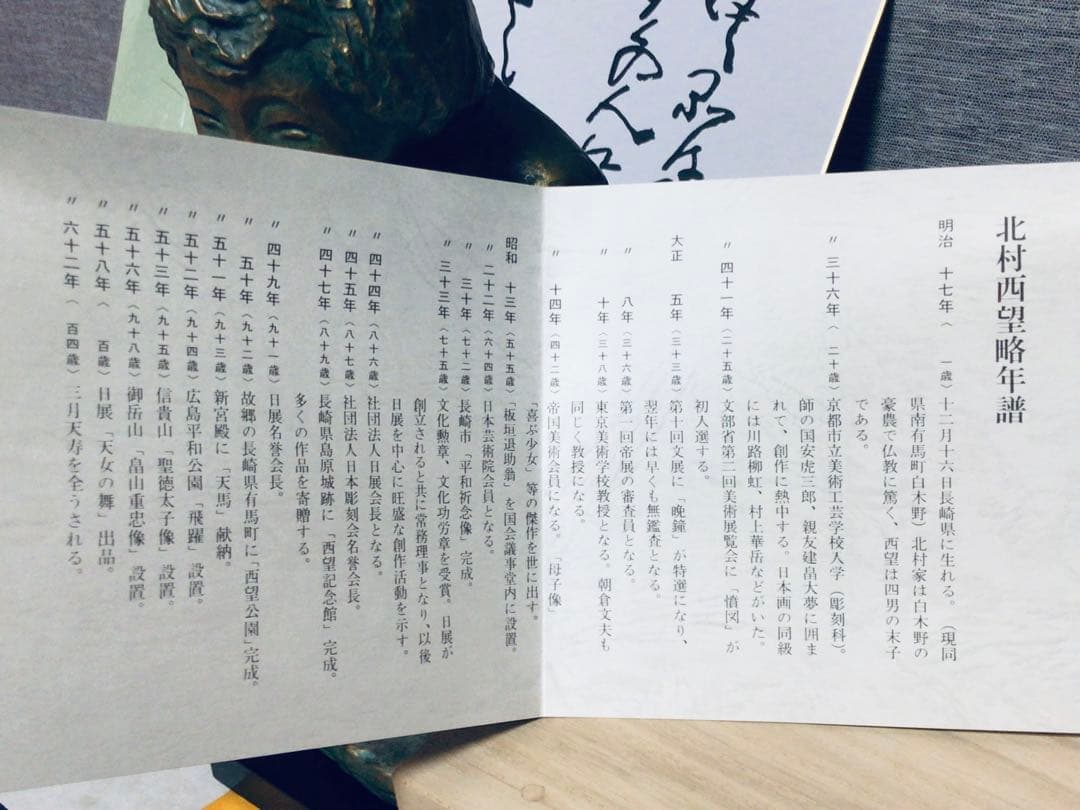 北村西望略年譜
明治　十七年（　一歳）十二月十六日長崎県に生れる。（現同
県南有馬町白木野）北村家は白木野の
豪農で仏教に篤く、西望は四男の末子
である。
〃　三十六年（　二十歳）京都市立美術工芸学校入学（彫刻科）。
師の国安虎三郎、親友建畠大夢に囲ま
れて、創作に熱中する。日本画の同級
には川路柳虹、村上華岳などがいた。
〃　四十一年（二十五歳）文部省第二回美術展覧会に「憤図」が
初入選する。
大正　五年（三十三歳）第十回文展に「晩鐘」が特選になり、
翌年には早くも無鑑査となる。
〃　八年（三十六歳）第一回帝展の審査員となる。
〃　十年（三十八歳）東京美術学校教授となる。朝倉文夫も
同じく教授になる。
〃　十四年（四十二歳）帝国美術会員になる。「母子像」
「喜ぶ少女」等の傑作を世に出す。
昭和　十三年（五十五歳）「板垣退助翁」を国会議事堂内に設置。
〃　二十二年（六十四歳）日本芸術院会員となる。
〃　三十年（七十二歳）長崎市「平和祈念像」完成。
〃　三十三年（七十五歳）文化勲章、文化功労章を受賞。日展が
創立されると共に常務理事となり、以後
日展を中心に旺盛な創作活動を示す。
〃　四十四年（八十六歳）社団法人日展会長となる。
〃　四十五年（八十七歳）社団法人日本彫刻会名誉会長。
〃　四十七年（八十九歳）長崎県島原城跡に「西望記念館」完成。
多くの作品を寄贈する。
〃　四十九年（九十一歳）日展名誉会長。
〃　五十年（九十二歳）故郷の長崎県有馬町に「西望公園」完成。
〃　五十一年（九十三歳）新宮殿に「天馬」献納。
〃　五十二年（九十四歳）広島平和公園「飛躍」設置。
〃　五十三年（九十五歳）信貴山「聖徳太子像」設置。
〃　五十六年（九十八歳）御岳山「畠山重忠像」設置。
〃　五十八年（　百歳）日展「天女の舞」出品。
〃　六十二年（　百四歳）三月天寿を全うされる。